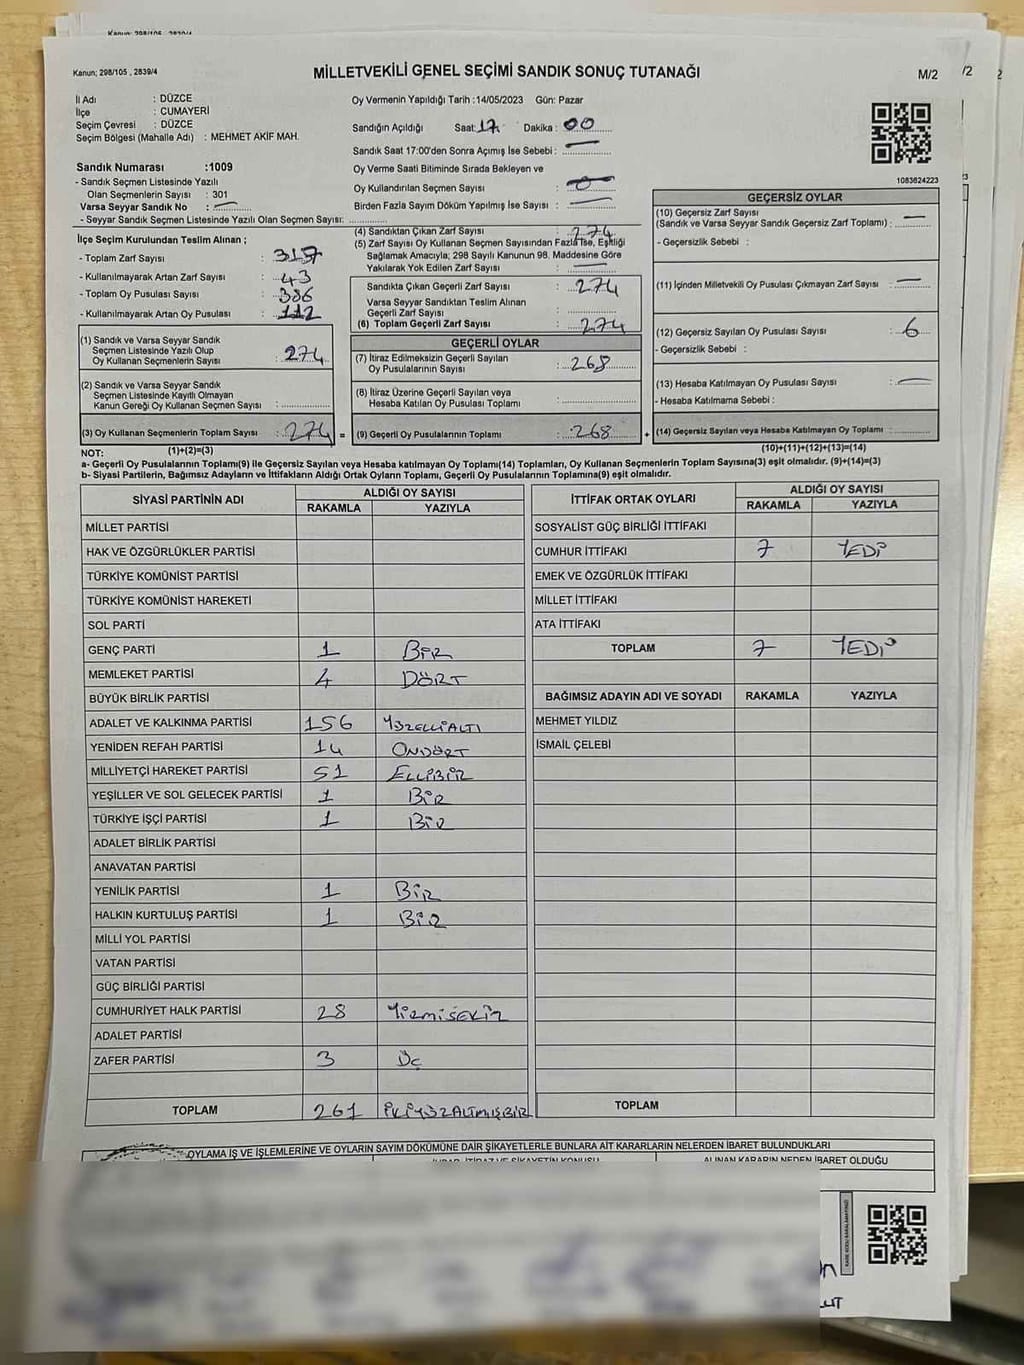 Kanun; 298/105 , 2839/4
MİLLETVEKİLİ GENEL SEÇİMİ SANDIK SONUÇ TUTANAĞI
M/2
/2
İl Adı : DÜZCE
İlçe : CUMAYERİ
Seçim Çevresi : DÜZCE
Seçim Bölgesi (Mahalle Adı) : MEHMET AKİF MAH.
Sandık Numarası :1009
- Sandık Seçmen Listesinde Yazılı
Olan Seçmenlerin Sayısı : 301
Varsa Seyyar Sandık No : —
- Seyyar Sandık Seçmen Listesinde Yazılı Olan Seçmen Sayısı:
Oy Vermenin Yapıldığı Tarih :14/05/2023 Gün: Pazar
Sandığın Açıldığı Saat: 17 Dakika : 00
Sandık Saat 17:00'den Sonra Açılmış İse Sebebi : —
Oy Verme Saati Bitiminde Sırada Bekleyen ve
Oy Kullandırılan Seçmen Sayısı : 0
Birden Fazla Sayım Döküm Yapılmış İse Sayısı : —
1083624223
İlçe Seçim Kurulundan Teslim Alınan ;
- Toplam Zarf Sayısı : 317
- Kullanılmayarak Artan Zarf Sayısı : 43
- Toplam Oy Pusulası Sayısı : 386
- Kullanılmayarak Artan Oy Pusulası : 112
(1) Sandık ve Varsa Seyyar Sandık
Seçmen Listesinde Yazılı Olup
Oy Kullanan Seçmenlerin Sayısı : 274
(2) Sandık ve Varsa Seyyar Sandık
Seçmen Listesinde Kayıtlı Olmayan
Kanun Gereği Oy Kullanan Seçmen Sayısı :
(3) Oy Kullanan Seçmenlerin Toplam Sayısı : 274 =
(4) Sandıktan Çıkan Zarf Sayısı : 274
(5) Zarf Sayısı Oy Kullanan Seçmen Sayısından Fazla İse, Eşitliği
Sağlamak Amacıyla; 298 Sayılı Kanunun 98. Maddesine Göre
Yakılarak Yok Edilen Zarf Sayısı : —
Sandıkta Çıkan Geçerli Zarf Sayısı : 274
Varsa Seyyar Sandıktan Teslim Alınan
Geçerli Zarf Sayısı :
(6) Toplam Geçerli Zarf Sayısı : 274
GEÇERLİ OYLAR
(7) İtiraz Edilmeksizin Geçerli Sayılan
Oy Pusulalarının Sayısı : 268
(8) İtiraz Üzerine Geçerli Sayılan veya
Hesaba Katılan Oy Pusulası Toplamı :
(9) Geçerli Oy Pusulalarının Toplamı : 268 +
GEÇERSİZ OYLAR
(10) Geçersiz Zarf Sayısı
(Sandık ve Varsa Seyyar Sandık Geçersiz Zarf Toplamı) : —
- Geçersizlik Sebebi :
(11) İçinden Milletvekili Oy Pusulası Çıkmayan Zarf Sayısı : —
(12) Geçersiz Sayılan Oy Pusulası Sayısı : 6
- Geçersizlik Sebebi :
(13) Hesaba Katılmayan Oy Pusulası Sayısı : —
- Hesaba Katılmama Sebebi :
(14) Geçersiz Sayılan veya Hesaba Katılmayan Oy Toplamı :
NOT: (1)+(2)=(3) (10)+(11)+(12)+(13)=(14)
a- Geçerli Oy Pusulalarının Toplamı(9) ile Geçersiz Sayılan veya Hesaba katılmayan Oy Toplamı(14) Toplamları, Oy Kullanan Seçmenlerin Toplam Sayısına(3) eşit olmalıdır. (9)+(14)=(3)
b- Siyasi Partilerin, Bağımsız Adayların ve İttifakların Aldığı Ortak Oyların Toplamı, Geçerli Oy Pusulalarının Toplamına(9) eşit olmalıdır.
SİYASİ PARTİNİN ADI ALDIĞI OY SAYISI
RAKAMLA YAZIYLA
MİLLET PARTİSİ
HAK VE ÖZGÜRLÜKLER PARTİSİ
TÜRKİYE KOMÜNİST PARTİSİ
TÜRKİYE KOMÜNİST HAREKETİ
SOL PARTİ
GENÇ PARTİ 1 BİR
MEMLEKET PARTİSİ 4 DÖRT
BÜYÜK BİRLİK PARTİSİ
ADALET VE KALKINMA PARTİSİ 156 YÜZELLİALTI
YENİDEN REFAH PARTİSİ 14 ONDÖRT
MİLLİYETÇİ HAREKET PARTİSİ 51 ELLİBİR
YEŞİLLER VE SOL GELECEK PARTİSİ 1 BİR
TÜRKİYE İŞÇİ PARTİSİ 1 BİR
ADALET BİRLİK PARTİSİ
ANAVATAN PARTİSİ
YENİLİK PARTİSİ 1 BİR
HALKIN KURTULUŞ PARTİSİ 1 BİR
MİLLİ YOL PARTİSİ
VATAN PARTİSİ
GÜÇ BİRLİĞİ PARTİSİ
CUMHURİYET HALK PARTİSİ 28 YİRMİSEKİZ
ADALET PARTİSİ
ZAFER PARTİSİ 3 ÜÇ
TOPLAM 261 İKİYÜZALTMIŞBİR
İTTİFAK ORTAK OYLARI ALDIĞI OY SAYISI
RAKAMLA YAZIYLA
SOSYALİST GÜÇ BİRLİĞİ İTTİFAKI
CUMHUR İTTİFAKI 7 YEDİ
EMEK VE ÖZGÜRLÜK İTTİFAKI
MİLLET İTTİFAKI
ATA İTTİFAKI
TOPLAM 7 YEDİ
BAĞIMSIZ ADAYIN ADI VE SOYADI RAKAMLA YAZIYLA
MEHMET YILDIZ
İSMAİL ÇELEBİ
TOPLAM
OYLAMA İŞ VE İŞLEMLERİNE VE OYLARIN SAYIM DÖKÜMÜNE DAİR ŞİKAYETLERLE BUNLARA AİT KARARLARIN NELERDEN İBARET BULUNDUKLARI
ALINAN KARARIN NEDEN İBARET OLDUĞU